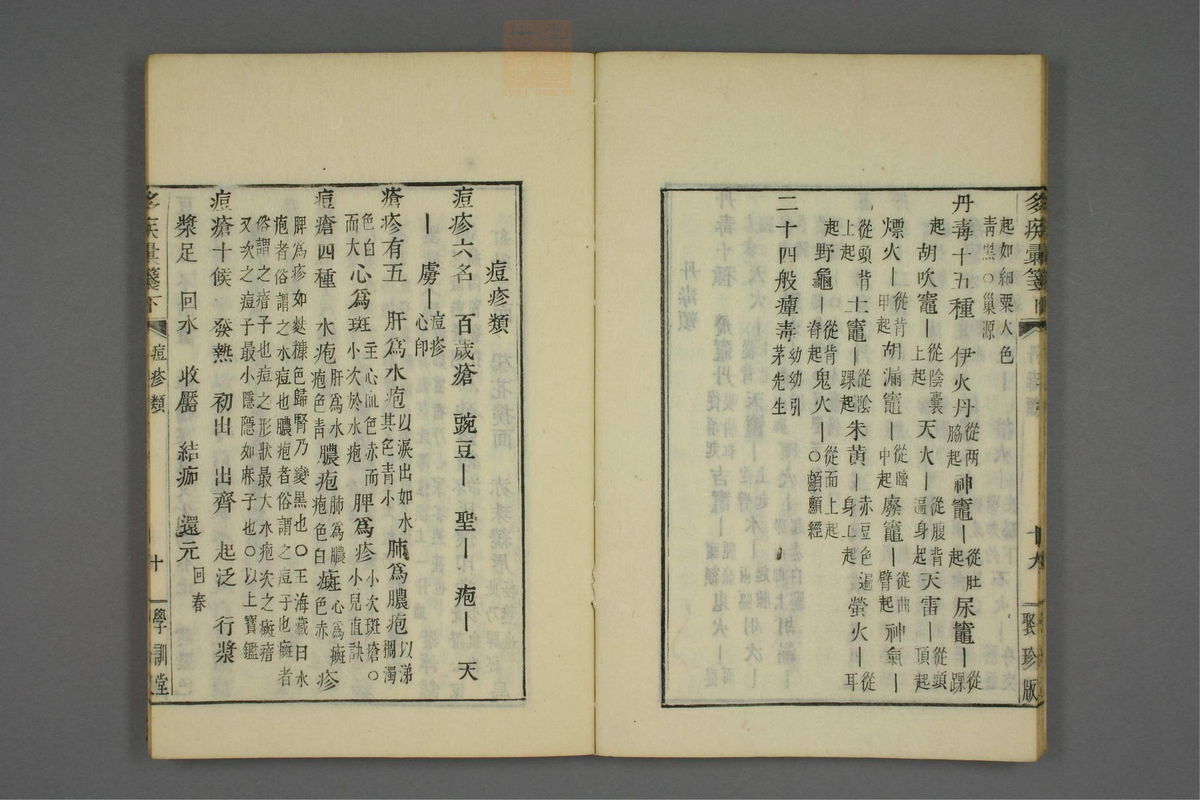 起如細粟大色
靑黑○巢源
丹毒十五種 伊火丹從兩脇起 神竈丨從肚起 尿竈丨從踝
起 胡吹竈丨從陰囊上起 天火丨從腹背遍身起 天雷丨從頭頂起
熛火丨從背甲起 胡漏竈丨從臍中起 廱竈丨從曲臂起 神氣丨
從頭背上起 土竈丨從陰踝起 朱黃丨赤豆色遍身上起 螢火丨從耳
起 野龜丨從背脊起 鬼火丨從面上起○顱顖經
二十四般癉毒 幼幼引茅先生
十九
聚珍版
痘疹類
痘疹六名 百歲瘡 豌豆丨 聖丨 疱丨 天
丨 虜丨痘疹心印
瘡疹有五 肝爲水疱以淚出如水其色靑小 肺爲膿疱以涕稠濁
色白而大 心爲斑主心血色赤而小次於水疱 脾爲疹小次斑瘡○小兒直訣
痘瘡四種 水疱肝爲水疱色靑 膿疱肺爲膿疱色白 癍心爲癍色赤 疹
脾爲疹如麩糠色歸腎乃變黑也○王海藏曰水
疱者俗謂之水痘也膿疱者俗謂之痘子也癍者
俗謂之瘄子也痘之形狀最大水疱次之癍瘄
又次之痘子最小隱隱如麻子也○以上寶鑑
痘瘡十候 發熱 初出 出齊 起泛 行漿
漿足 回水 收靨 結痂 還元回春
痘疹類
十
學訓堂